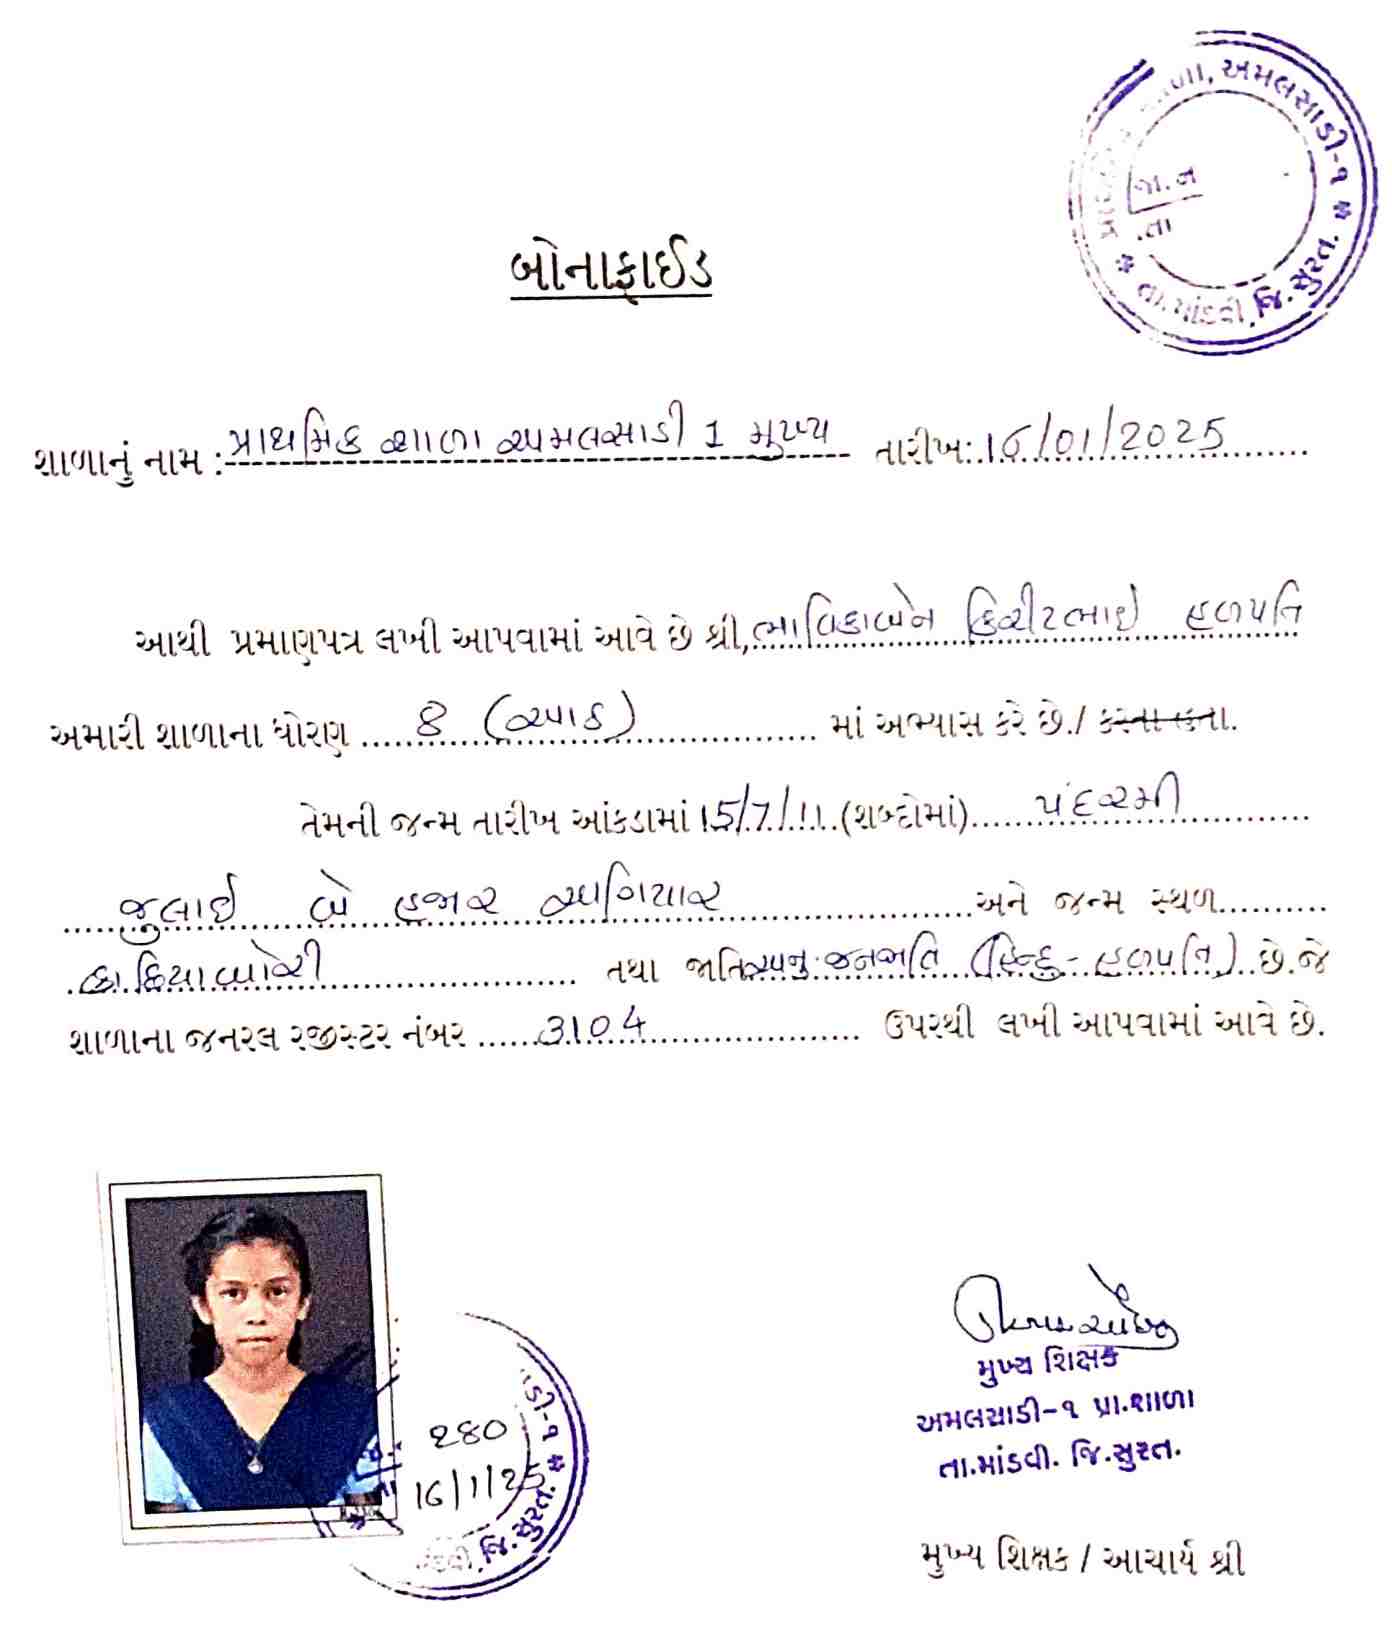 શાળા, અમલસાડી-૧ * તા.માંડવી, જિ.સુરત. *
જા.ન
.તા
બોનાફાઈડ
શાળાનું નામ : પ્રાથમિક શાળા અમલસાડી 1 મુખ્ય તારીખ: 16/01/2025
આથી પ્રમાણપત્ર લખી આપવામાં આવે છે શ્રી, ભાવિકાબેન કિરીટભાઇ હળપતિ
અમારી શાળાના ધોરણ 8 (આઠ) માં અભ્યાસ કરે છે./ કરતા હતા.
તેમની જન્મ તારીખ આંકડામાં 15/7/11 (શબ્દોમાં) પંદરમી
જુલાઇ બે હજાર અગિયાર અને જન્મ સ્થળ
તથા જાતિ અનુ.જનજાતિ (હિન્દુ-હળપતિ) છે.જે
શાળાના જનરલ રજીસ્ટર નંબર 3104 ઉપરથી લખી આપવામાં આવે છે.
ડી-૧ * જિ.સુરત.
280
16/1/25
મુખ્ય શિક્ષક
અમલસાડી-૧ પ્રા.શાળા
તા.માંડવી. જિ.સુરત.
મુખ્ય શિક્ષક / આચાર્ય શ્રી